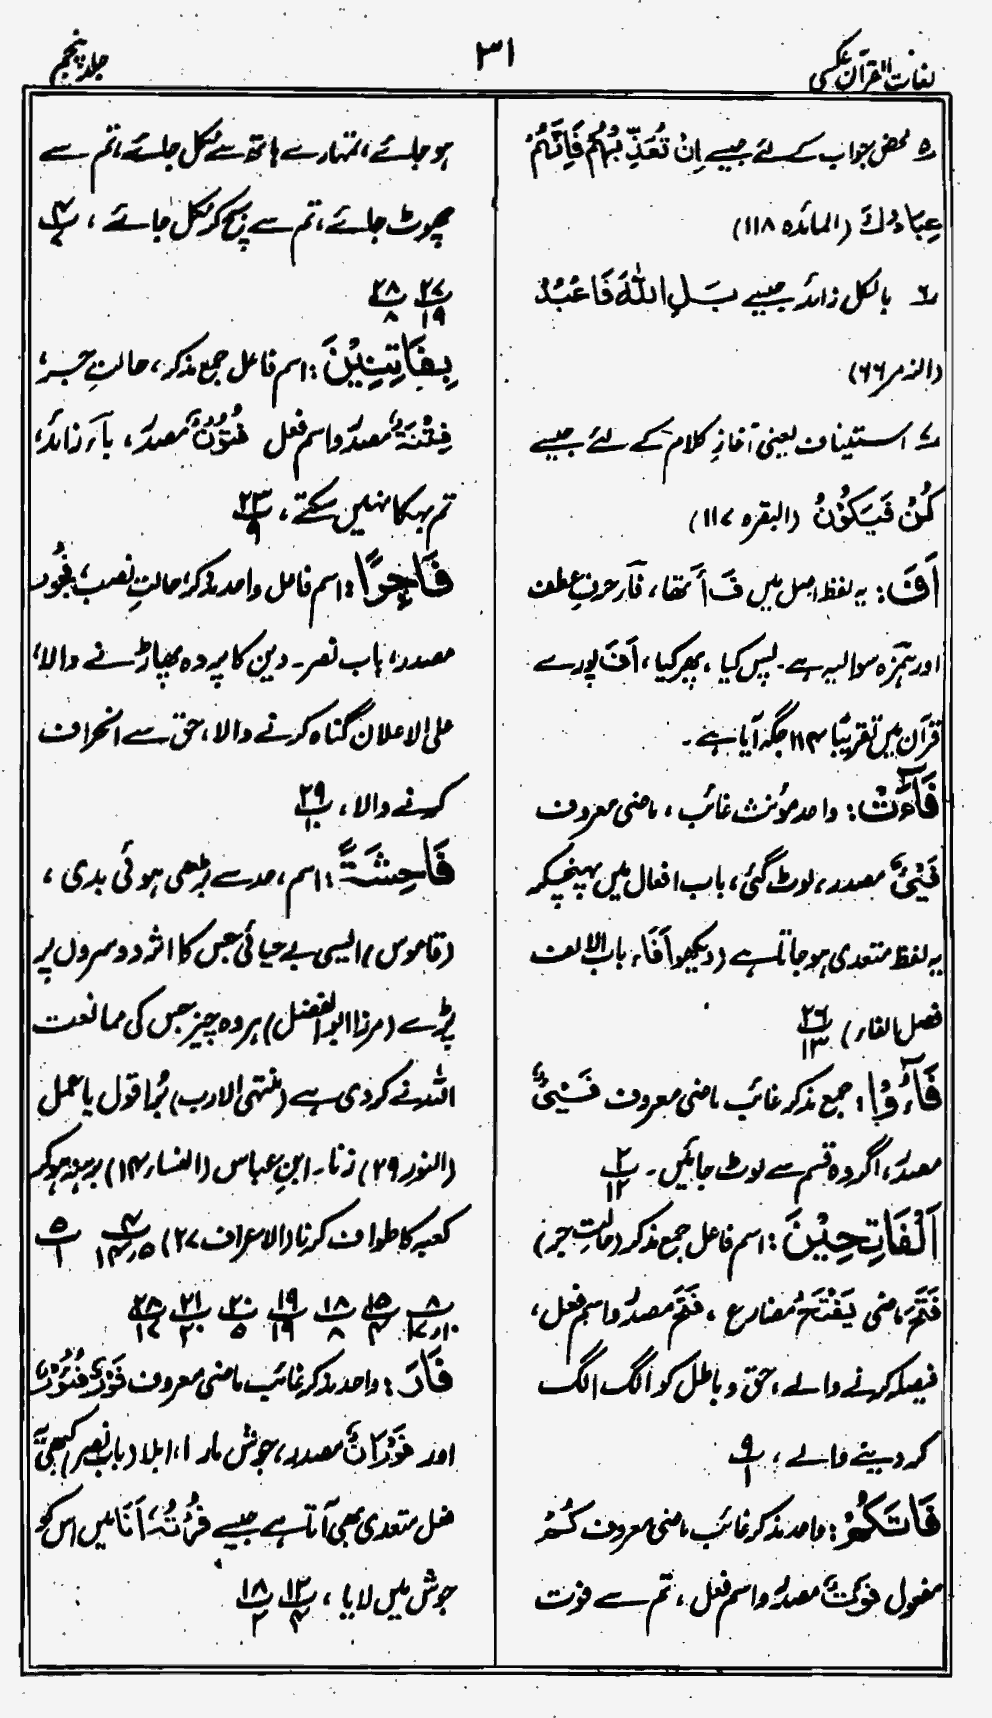 لغات القرآن عکسی
۳۱
جلد پنجم
۵ محض جواب کے لئے جیسے اِنْ تُعَذِّبْہُمْ فَاِنَّہُمْ
عِبَادُكَ (المائدہ ۱۱۸)
۶ بالکل زائد جیسے بَلِ اللّٰہَ فَاعْبُدْ
(الزمر ۶۶)
۷ استیناف یعنی آغازِ کلام کے لئے جیسے
كُنْ فَيَكُوْنُ (البقرہ ۱۱۷)
اَفَ: یہ لفظ اصل میں فَ أَ تھا، فَار حرفِ عطف
اور ہمزہ سوالیہ ہے۔ پس کیا، پھر کیا، اَفَ پورے
قرآن میں تقریبًا ۱۱۴ جگہ آیا ہے۔
فَآءَتْ: واحد مؤنث غائب، ماضی معروف
فَیْئٌ مصدر، لوٹ گئی، باب افعال میں پہنچکر
یہ لفظ متعدی ہو جاتا ہے (دیکھو اَفَاء باب الالف
فصل الفار) ۲۶/۱۳
فَآءُوْا: جمع مذکر غائب ماضی معروف فَیْئٌ
مصدر، اگر وہ قسم سے لوٹ جائیں۔ ۲/۱۲
اَلْفَاتِحِیْنَ: اسم فاعل جمع مذکر (حالتِ جر)
فَتَحَ ماضی یَفْتَحُ مضارع، فَتْحٌ مصدر واسم فعل،
فیصلہ کرنے والے، حق و باطل کو الگ الگ
کر دینے والے، ۹/۱
فَاتَكُمْ: واحد مذکر غائب ماضی معروف كُمْ
مفعول فَوْتٌ مصدر واسم فعل، تم سے فوت
ہو جائے، تمہارے ہاتھ سے نکل جائے، تم سے
چھوٹ جائے، تم سے بچ کر نکل جائے، ۴/۷
۲۷/۱۹ ۲۸/۸
بِفَاتِنِیْنَ: اسم فاعل جمع مذکر، حالتِ جر،
فِتْنَۃٌ مصدر واسم فعل فُتُوْنٌ مصدر، بآء زائد،
تم بہکا نہیں سکتے، ۲۳/۹
فَاجِرًا: اسم فاعل واحد مذکر حالتِ نصب، فُجُور
مصدر، باب نصر۔ دین کا پردہ پھاڑنے والا،
علی الاعلان گناہ کرنے والا، حق سے انحراف
کرنے والا، ۲۹/۱۰
فَاحِشَۃً: اسم، حد سے بڑھی ہوئی بدی،
(قاموس) ایسی بے حیائی جس کا اثر دوسروں پر
پڑے (مرزا ابوالفضل) ہر وہ چیز جس کی ممانعت
اللہ نے کردی ہے (منتہی الارب) بُرا قول یا عمل
(النور ۲۹) زنا۔ ابنِ عباس (النساء ۱۴) برہنہ ہوکر
کعبہ کا طواف کرنا (الاعراف ۲۷) ۴/۱۴،۵ ۵/۱
۸/۱۰،۱۷ ۱۵/۴ ۱۸/۸ ۱۹/۱۹ ۲۰/۵ ۲۱/۲۰ ۲۸/۱۷
فَارَ: واحد مذکر غائب ماضی معروف فَوْرٌ فُئُوْرٌ
اور فَوَرَانٌ مصدر، جوش مارا، ابلا (باب نصر) کبھی یہ
فعل متعدی بھی آتا ہے جیسے فُرْتُہٗ اَنَا میں اس کو
جوش میں لایا، ۱۲/۴ ۱۸/۲